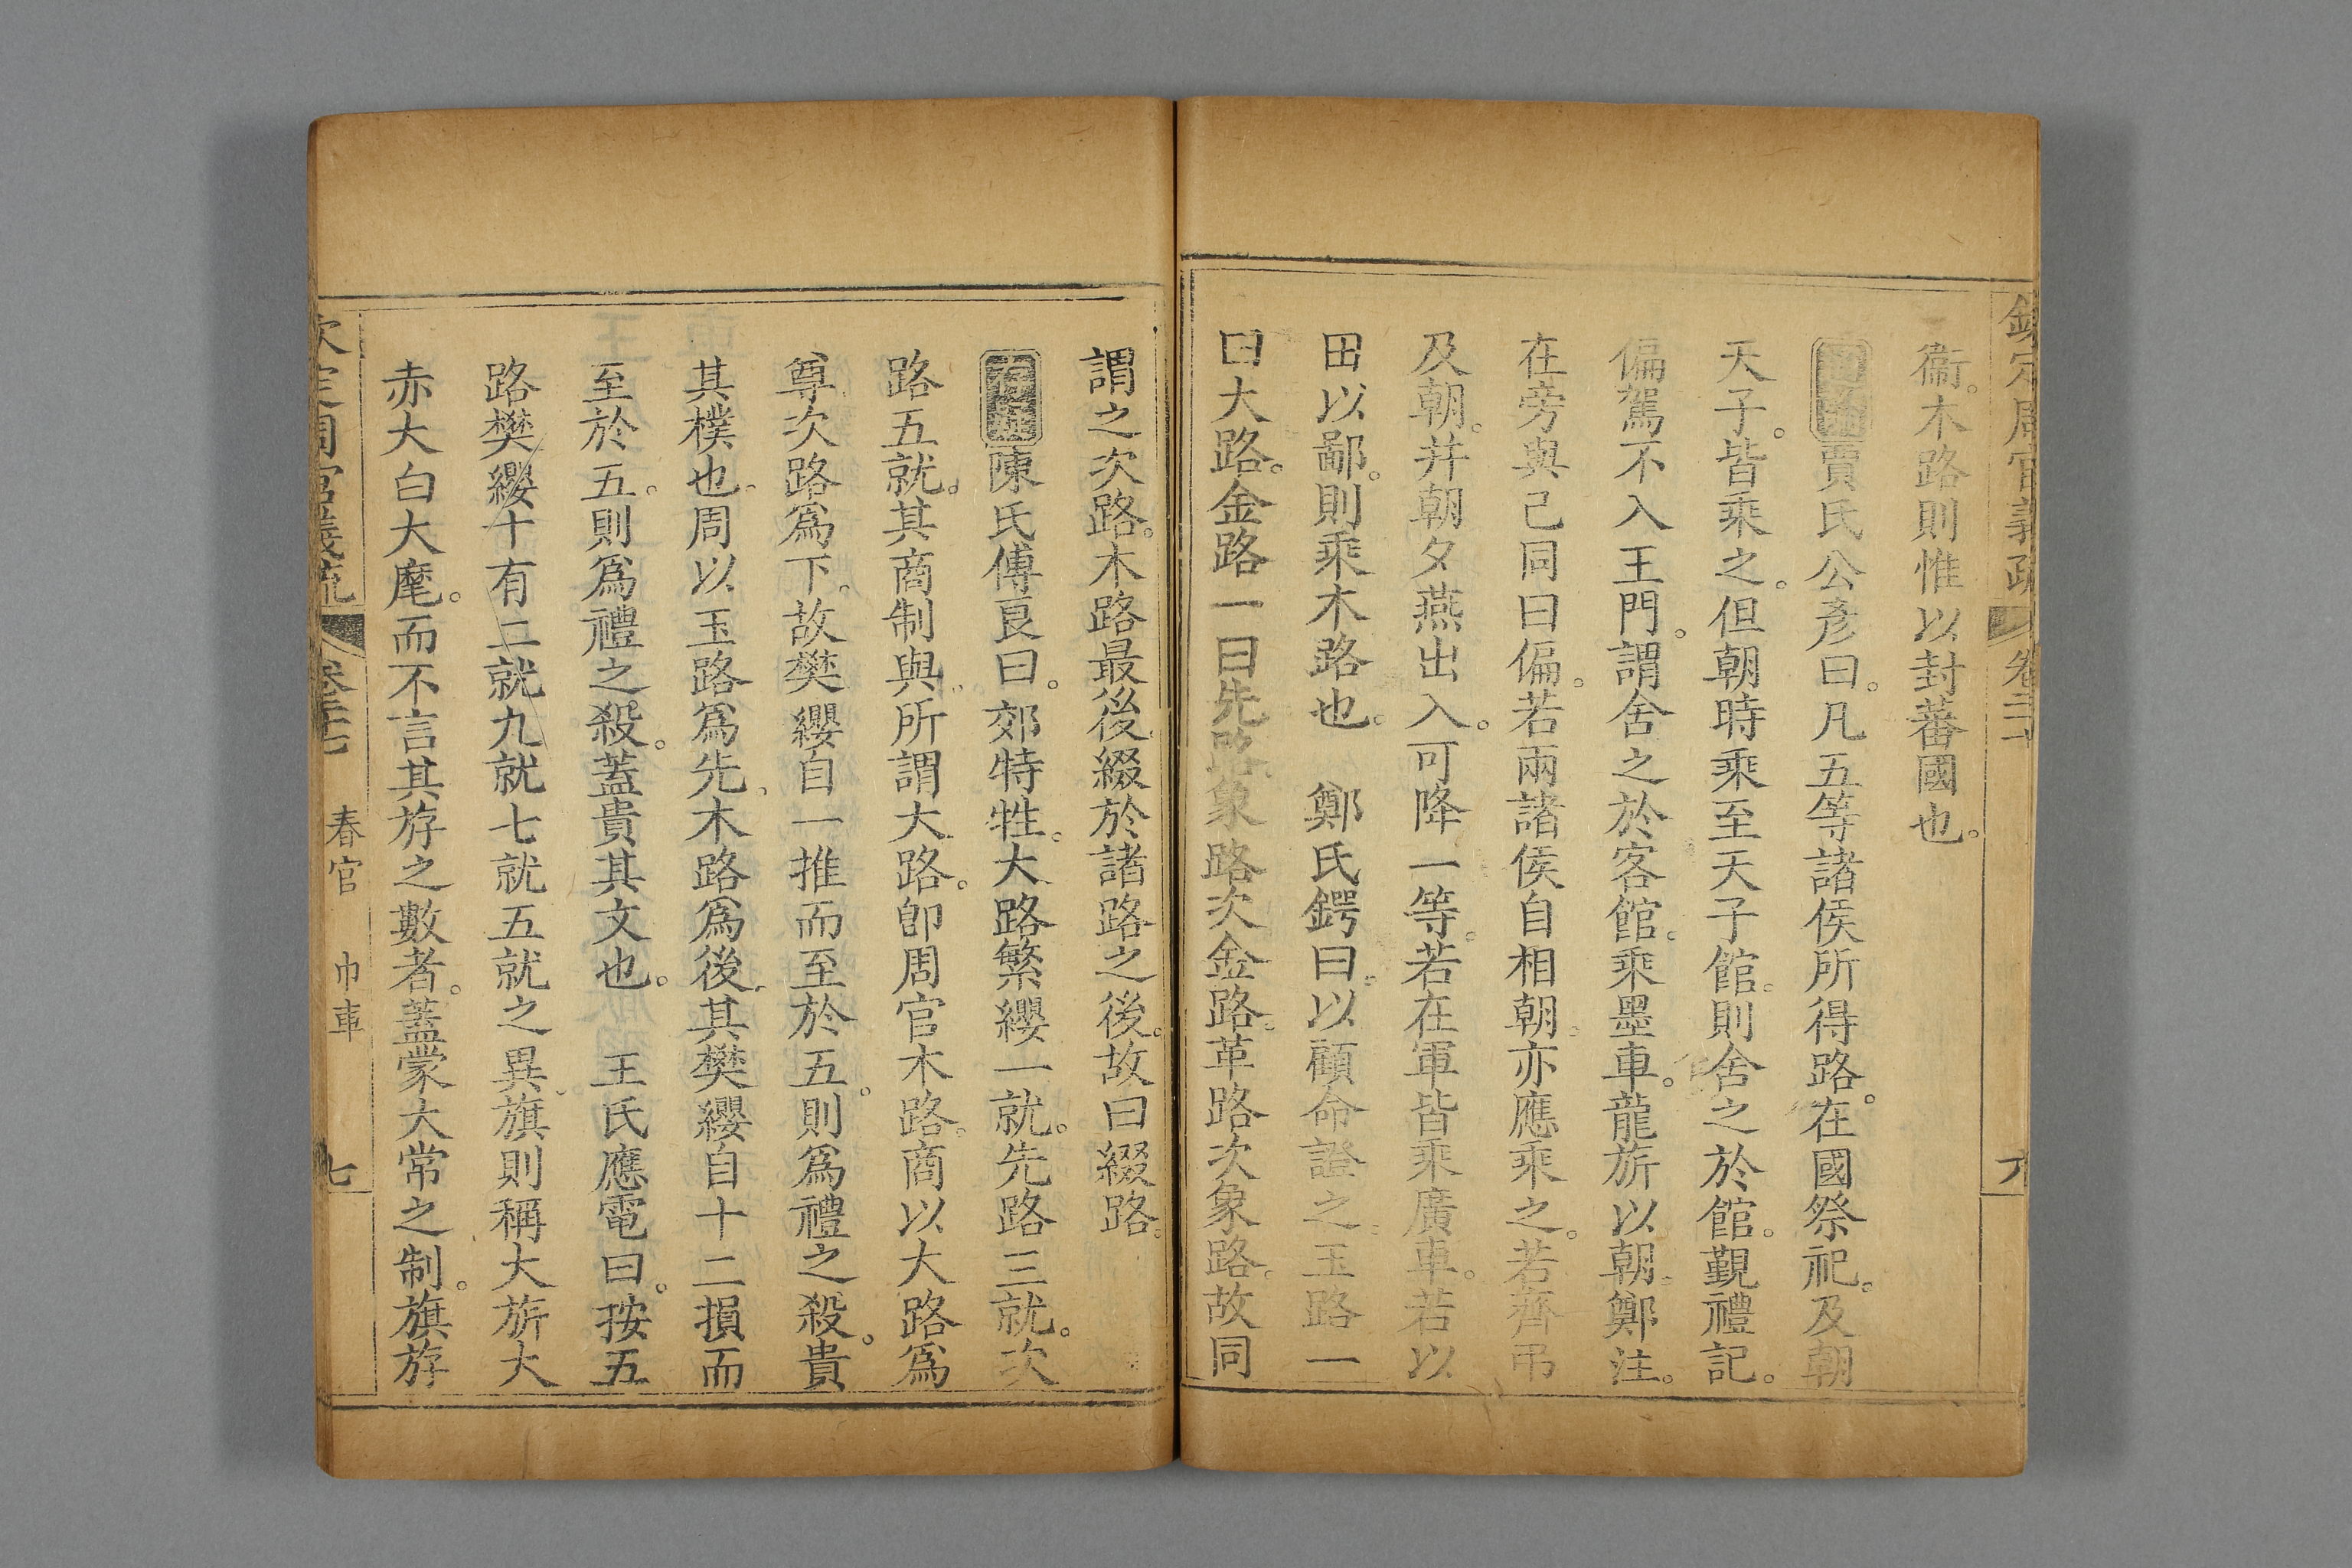 欽定周官義疏 卷二十
衞。木路則惟以封蕃國也。
通論賈氏公彥曰。凡五等諸侯所得路。在國祭祀。及朝
天子。皆乘之。但朝時乘至天子館。則舍之於館。覲禮記。
偏駕不入王門。謂舍之於客館。乘墨車。龍旂以朝。鄭注。
在旁與己同曰偏。若兩諸侯自相朝。亦應乘之。若齊弔
及朝。并朝夕燕出入。可降一等。若在軍皆乘廣車。若以
田以鄙。則乘木路也。 鄭氏鍔曰。以顧命證之。玉路一
曰大路。金路一曰先路。象路次金路。革路次象路。故同
謂之次路。木路最後綴於諸路之後。故曰綴路。
存疑陳氏傅良曰。郊特牲。大路繁纓一就。先路三就。次
路五就。其商制與。所謂大路。卽周官木路。商以大路爲
尊。次路爲下。故樊纓自一推而至於五。則爲禮之殺。貴
其樸也。周以玉路爲先。木路爲後。其樊纓自十二損而
至於五。則爲禮之殺。蓋貴其文也。 王氏應電曰。按五
路樊纓十有二就九就七就五就之異。旗則稱大旂大
赤大白大麾。而不言其斿之數者。蓋蒙大常之制。旗斿
欽定周官義疏 卷二十七 春官 巾車 七